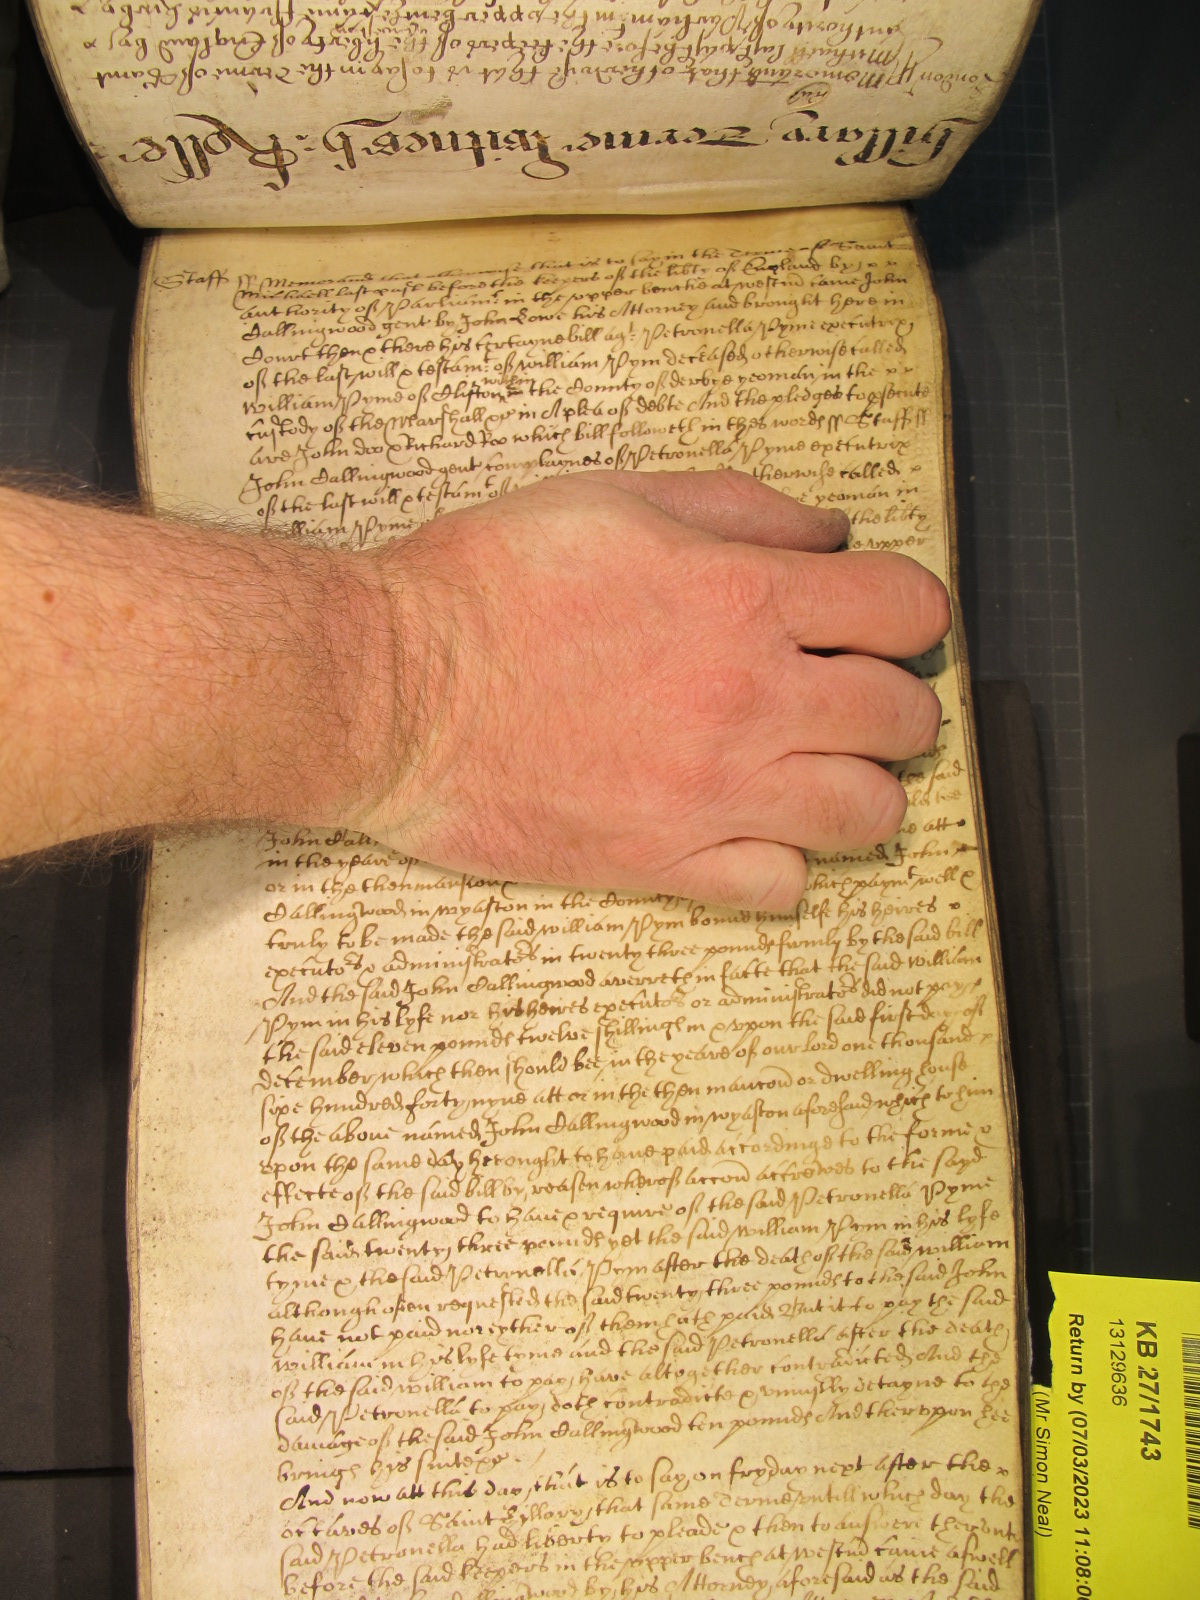 Hillary Terme Witnesh: Rolle
London ss Memorand that otherwise that is to say in the Terme of Saint
Michaell last past before the keepers of the liberty of England by x
authority of Parliam in the upper bench
Staff ss Memorand that otherwise that is to say in the Terme of Saint
Michaell last past before the keepers of the libty of England by x x
authority of Parliamt in the upper benche at westm came John
Dallingwood gent by John Lowe his Attorney and brought here in
Court then & there his certayne bill agt Petronella Pyme executrix
of the last will & testamt of William Pym deceased otherwise called
William Pyme of Clifton within the County of derbye yeoman in the x x
custody of the Marshall &c in A plea of debte And the pledges to prsecute
are John doo & Richard Roo which bill followeth in thes words ss Staff ss
John Dallingwood gent complaynes of Petronella Pyme executrix
of the last will & testamt of otherwise called x
William Pyme yeoman in
the libty
upper
the said
att
John Dall named John
in the yeare of which paymt well &
or in the then mansion
Dallingwood in wyaston in the County
truly to be made the said william Pym bound himself his heires x
executors & administrators in twenty three pounds firmly by the said bill
And the said John Dallingwood averreth in facte that the said William
Pym in his lyfe nor his heires executors or administrators did not pay
the said eleven pounds twelve shillings in & upon the said first day of
december which then should bee in the yeare of our lord one thousand
sixe hundred forty nyne att or in the then mancon or dwelling house
of the above named John Dallingwood in wyaston aforesaid which to him
upon the same day he ought to have paid accordinge to the forme &
effecte of the said bill by reason wherof accon accrewes to the sayd
John Dallingwood to have & require of the said Petronella Pyme
the said twenty three pounds yet the said William Pym in his lyfe
tyme & the said Petronella Pym after the death of the said william
although often requested the said twenty three pounds to the said John
have not paid nor eyther of them hath paid But it to pay the said
William in his lyfe tyme and the said Petronella after the death
of the said william to pay have altogether contradicted And the
said Petronella to pay doth contradicte & uniustly detayne to the
damage of the said John Dallingwood ten pounds And therupon hee
bringes his suite &c
And now att this day that is to say on fryday next after the x
octaves of Saint Hillary that same Terme untill which day the
said Petronella had liberty to pleade & then to answere therunto
before the said keepers in the upper bench at westm came aswell
by his Attorney aforesaid as the said
KB 27/1743
13129636
Return by (07/03/2023 11:08:0
(Mr Simon Neal)